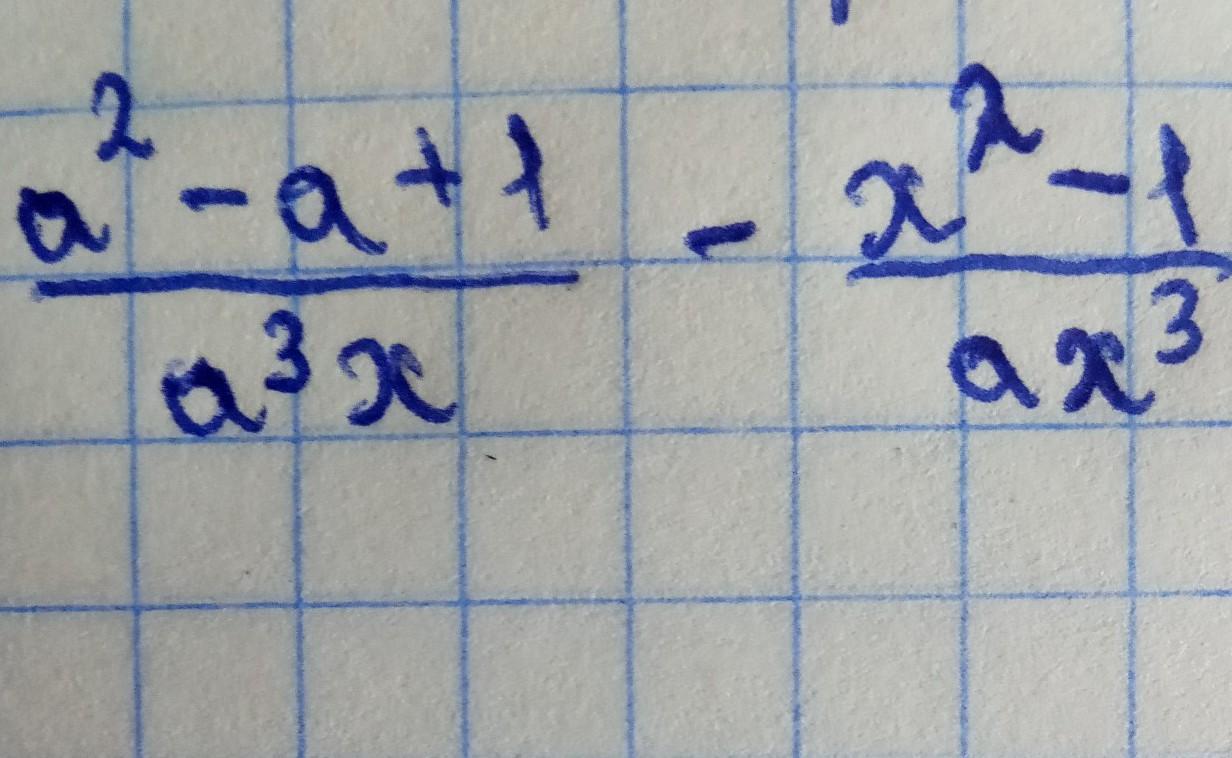 \frac{a^2 - a + 1}{a^3 x} - \frac{x^2 - 1}{a x^3}